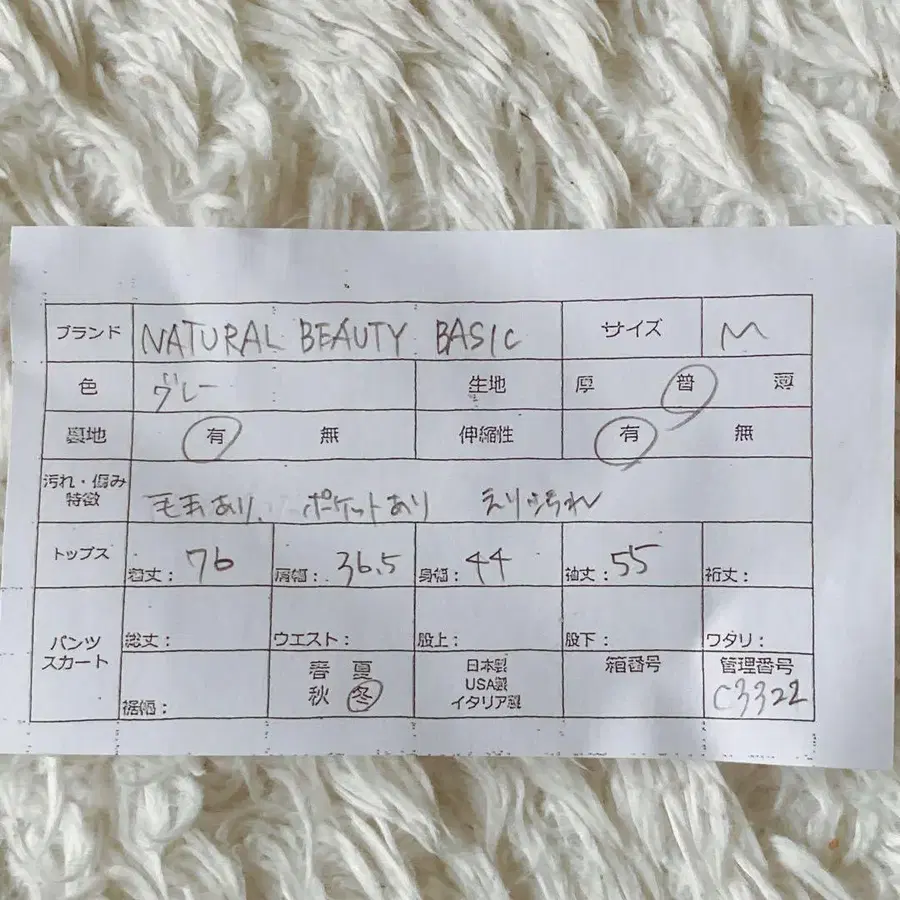 ブランド NATURAL BEAUTY BASIC サイズ M
色 グレー 生地 厚 普 薄
裏地 有 無 伸縮性 有 無
汚れ・傷み
特徴 毛玉あり、 ポケットあり えりよぢれ
トップス 着丈: 76 肩幅: 36.5 身幅: 44 袖丈: 55 裄丈:
パンツ
スカート 総丈: ウエスト: 股上: 股下: ワタリ:
裾幅: 春 夏
秋 冬 日本製
USA製
イタリア製 箱番号 管理番号
C3322